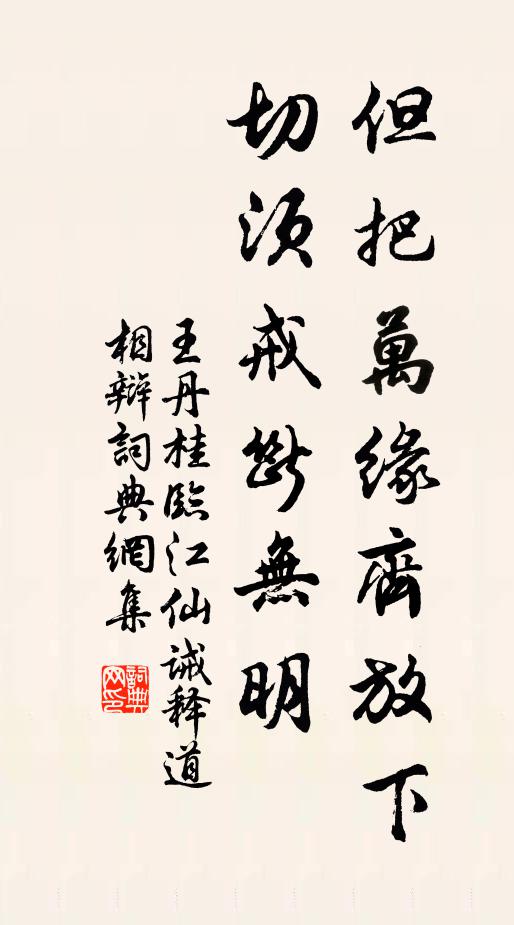 但把萬緣齊放下
切須戒斷無明
王丹桂臨江仙诫释道
相辯詞典網集
詞典
网印